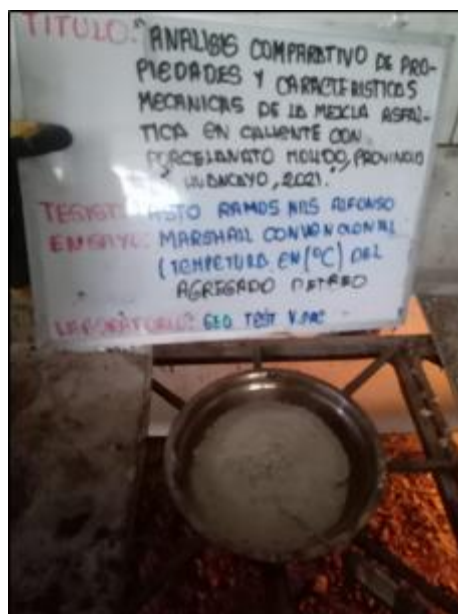 TITULO: "ANALISIS COMPARATIVO DE PRO-
PIEDADES Y CARACTERISTICAS
MECANICAS DE LA MEZCLA ASFAL-
TICA EN CALIENTE CON
PORCELANATO MOLIDO, PROVINCIA
HUANCAYO, 2021."
ASTO RAMOS NILS ALFONSO
ENSAYO: MARSHALL CONVENCIONAL
(TEMPETURA EN (°C) DEL
AGREGADO PETREO
LABORATORIO: GEO TEST V.